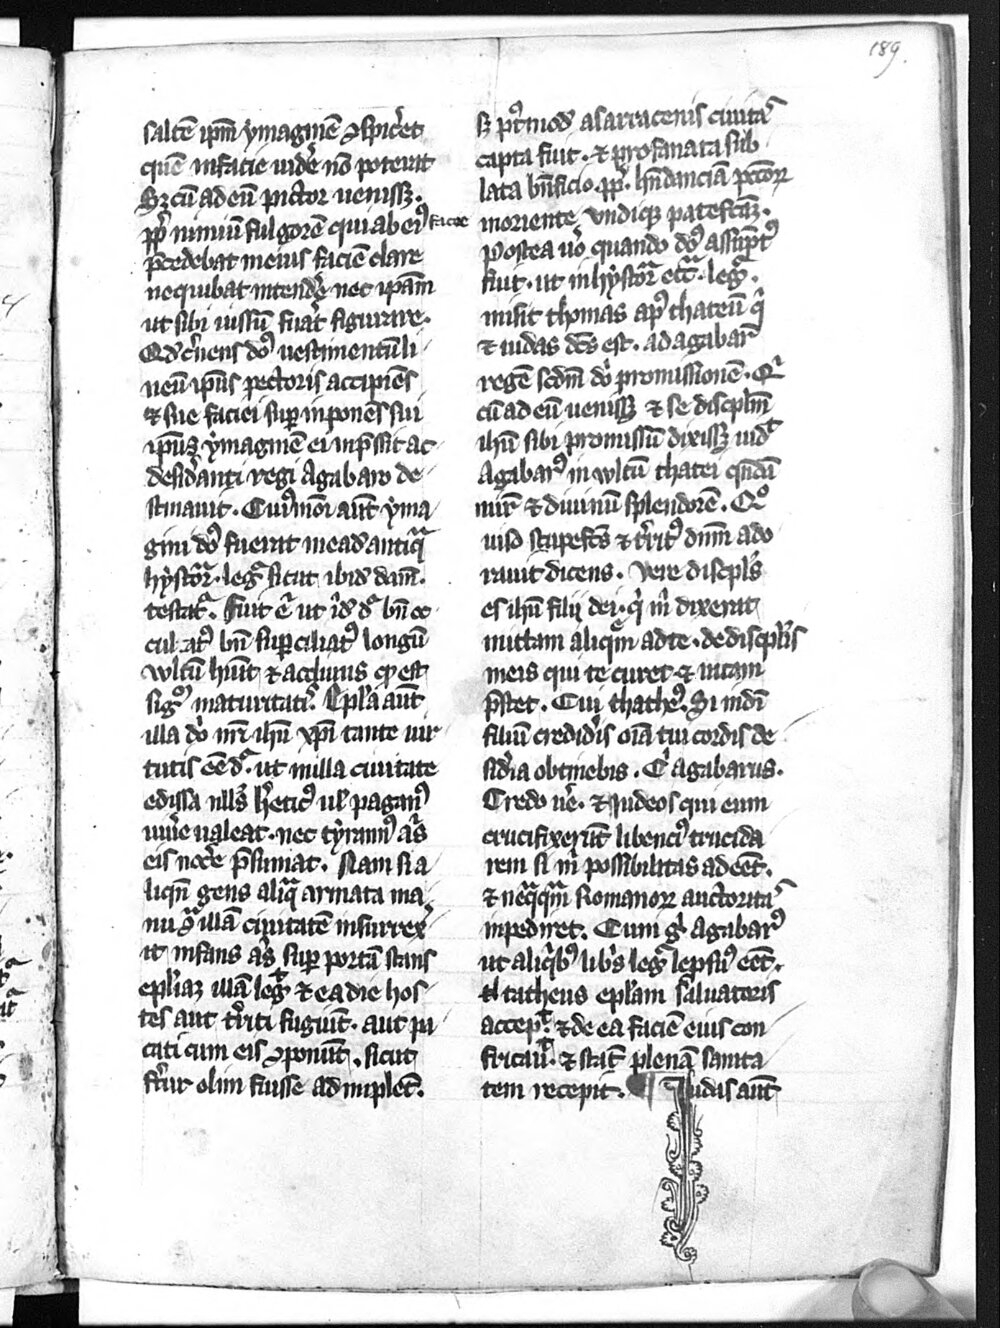 189.
saltē ipm̄ ymaginē ꝯspic̄et
quē in facie vidē nō poterat
Sꝫ cū ad eū pictor venissꝫ.
ꝓp̄ nimiū fulgorē qui ab ei⁹ facie
p̄cedebat in eius faciē clare
nequibat intendē nec ipam̄
ut sibi iussū fuāt figurare.
Qd̄ c̄nens dō⁹ vestimentū li
neū ipīus pectoris accipiēs
⁊ sue faciei suꝑ inponēs sui
ipīus ymaginē ei inp̄ssit ac
desid̄anti regi Agabaro de
stinauit. Cui⁹mōi aūt yma
gini dō⁹ fuerat in ead̄ antiq̄
hystor̄. leḡ sicut ibid̄ dam̄.
testat̄. Fuit .n. ut id̄ d̄r bn̄ o
culat⁹ bn̄ suꝑciliat⁹ longū
vultū hn̄it ⁊ accliuus qd̄ est
sig⁰ maturitatꝭ. Epl̄a aūt
illa dō nr̄i ihū xp̄i tante uir
tutis eē d̄r. ut in illa ciuitate
edissa null⁹ h̄etic⁹ ul̄ pagan⁹
uiūe ualeat. nec tyrann⁹ al̄s
eis noce p̄sumat. Nam si a
liqn̄ gens aliq̄ armata ma
nu ꝯ̄ illā ciuitatē insurrex̄
it infans al̄s suꝑ portā stans
epl̄iaꝫ illā leḡt ⁊ ea die hos
tes aut t̄riti fugiūt. aut pa
cati cum eis ꝯponūt. sicut
fr̄tur olim fuisse ad inplet̄.
sꝫ pt̄mod̄ a sarracenis ciuitas̄
capta fuit. ⁊ profanata sub
lata bn̄ficio ꝓp̄. hn̄danciā pcc̄oꝝ
in oriente undiqꝫ patefc̄aꝫ.
Postea uō quando dō⁹ assūpt⁹
fuit. ut in hystor̄ ecc̄. leḡ.
misit thomas apl̄ thateū q̄
⁊ iudas dc̄s est. ad agabar̄
regē sedm̄ dō promissionē. Q̄
cū ad eū uenissꝫ ⁊ se discplm̄
ihū sibi promissū dixissꝫ uid̄t
Agabar⁹ in wltū thatei qn̄dā
mir̄ ⁊ diuinū splendorē. Q⁰
uiso stupefc̄s ⁊ t̄rit⁹ dnm̄ ado
rauit dicens. vere discipl̄s
es ihū filij dei. q̄ m̄ dixerat
mittam aliqm̄ ad te. de discpl̄is
meis qui te curet ⁊ uitam
p̄stet. Cuj thathe⁹. Si in dī
filiū credid̄is oīa tui cordis de
sid̄ia obtinebis. C̄ Agabarus.
Credo ue. ⁊ Judeos qui eum
crucifixerūt libenci⁹ trucida
rem si m̄ possibilitas ad eēt.
⁊ neq̄qm̄ Romanoꝝ auctoritas̄
inpediret. Cum g̊ Agabar⁹
ut aliqb⁹ libꝭs leḡ lepsus eēt.
tatheus epl̄am saluatoris
accept̄. ⁊ de ea faciē eius con
fricau̅t. ⁊ stat̄ plenā sanita
tem recepit. ¶ Judas aūt